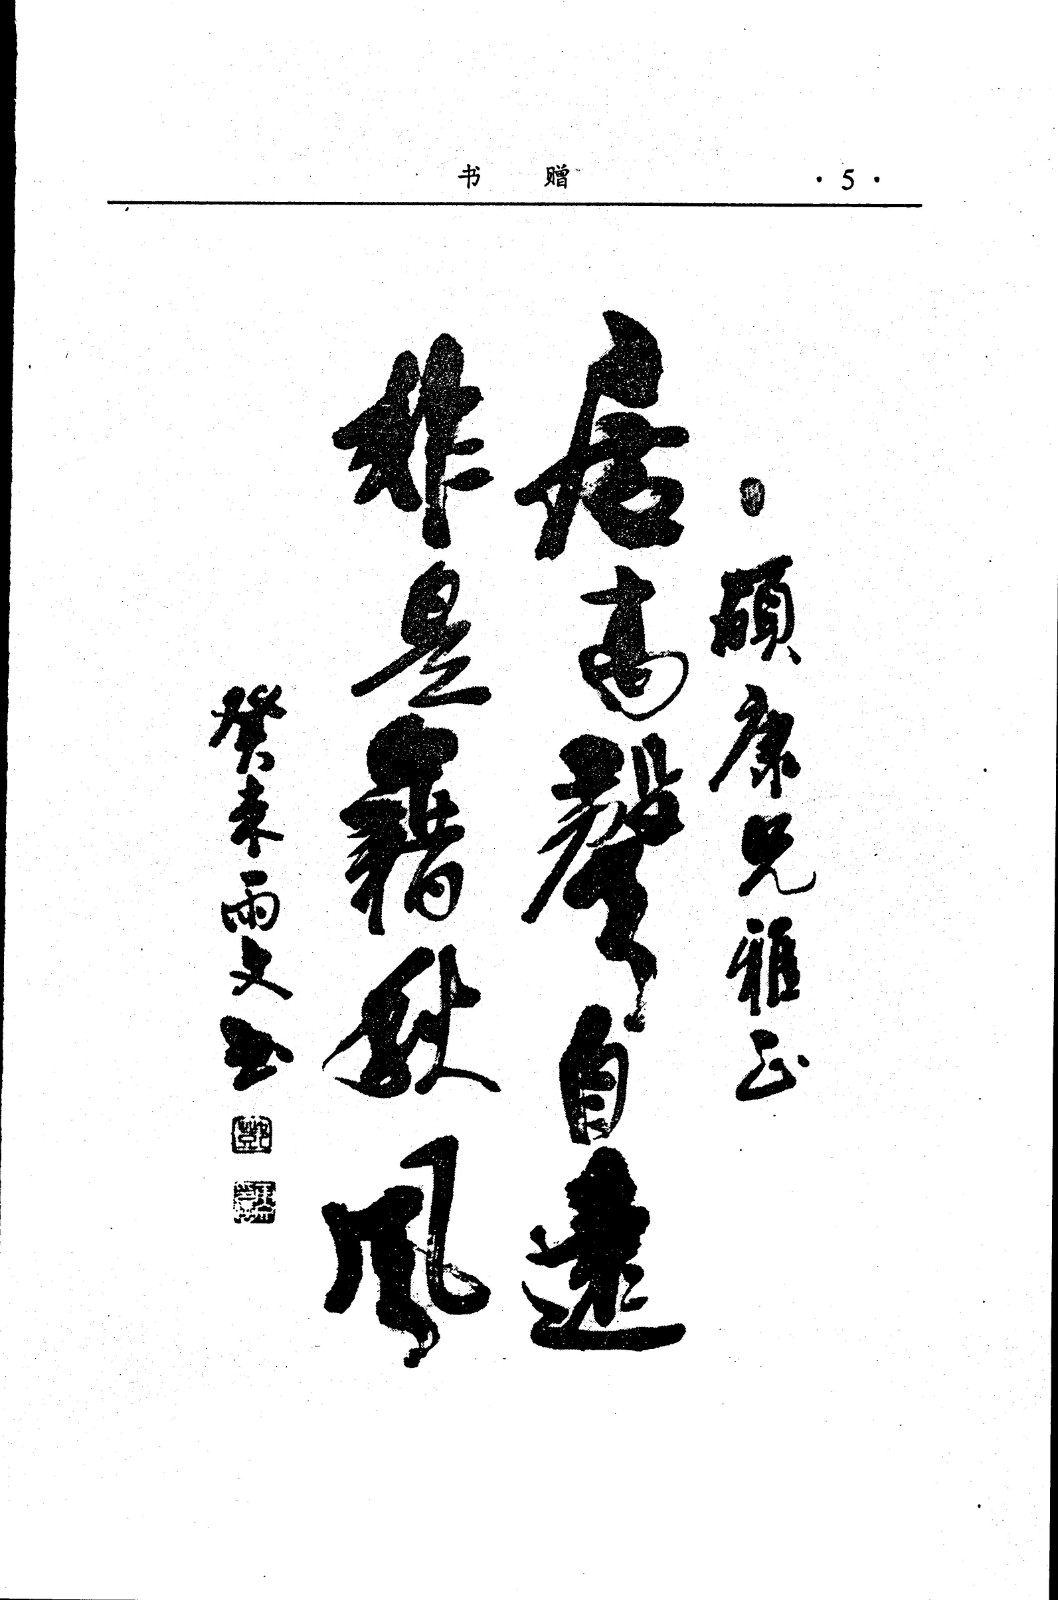 书 赠
· 5 ·
碩康兄雅正
居高聲自遠
非是藉秋風
癸未雨文書